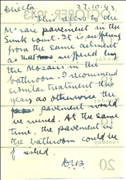 Director
27.10.43
This refers to the
M
pavement in the
Sunk Court. It is suffering
from the same ailment
as that suffered by
the Mosaic in the
bathroom. I recommend
similar treatment this
year as otherwise the
pavement would
be ruined. At the same
time, the pavement in
the bathroom could be
if asked.